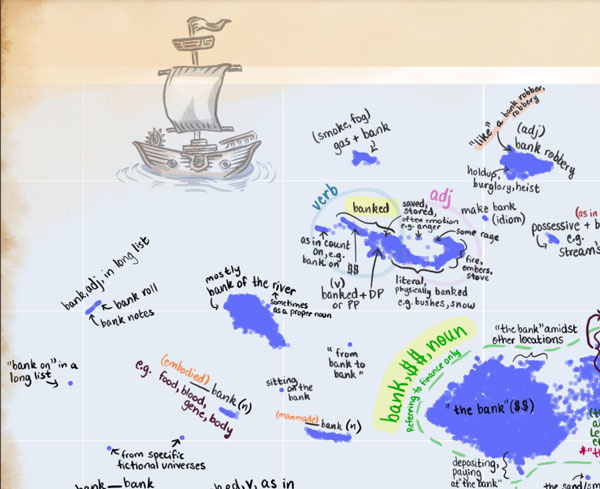 "like" a bank robber,
robbery
(adj)
bank robbery
holdup,
burglary, heist
(smoke, fog)
gas + bank
verb
banked
adj
saved,
stored,
often emotion
e.g. anger
some rage
make bank
(idiom)
(as in
possessive + b
e.g.
stream's
as in count
on, e.g.
bank on
$$
(v)
banked + DP
or PP
literal,
physically banked
e.g. bushes, snow
fire,
embers,
stove
bank, adj, in long list
bank roll
bank notes
mostly
bank of the river
sometimes
as a proper noun
"bank on" in a
long list
(embodied)
__ bank (n)
e.g. food, blood,
gene, body
"from
bank to
bank"
sitting
on the
bank
(manmade) __ bank (n)
bank, $$, noun
Referring to finance only
"the bank" amidst
other locations
"the bank" ($$)
depositing,
paying
at "the bank"
from specific
fictional universes
bank __ bank
v, as in
the sand/sm